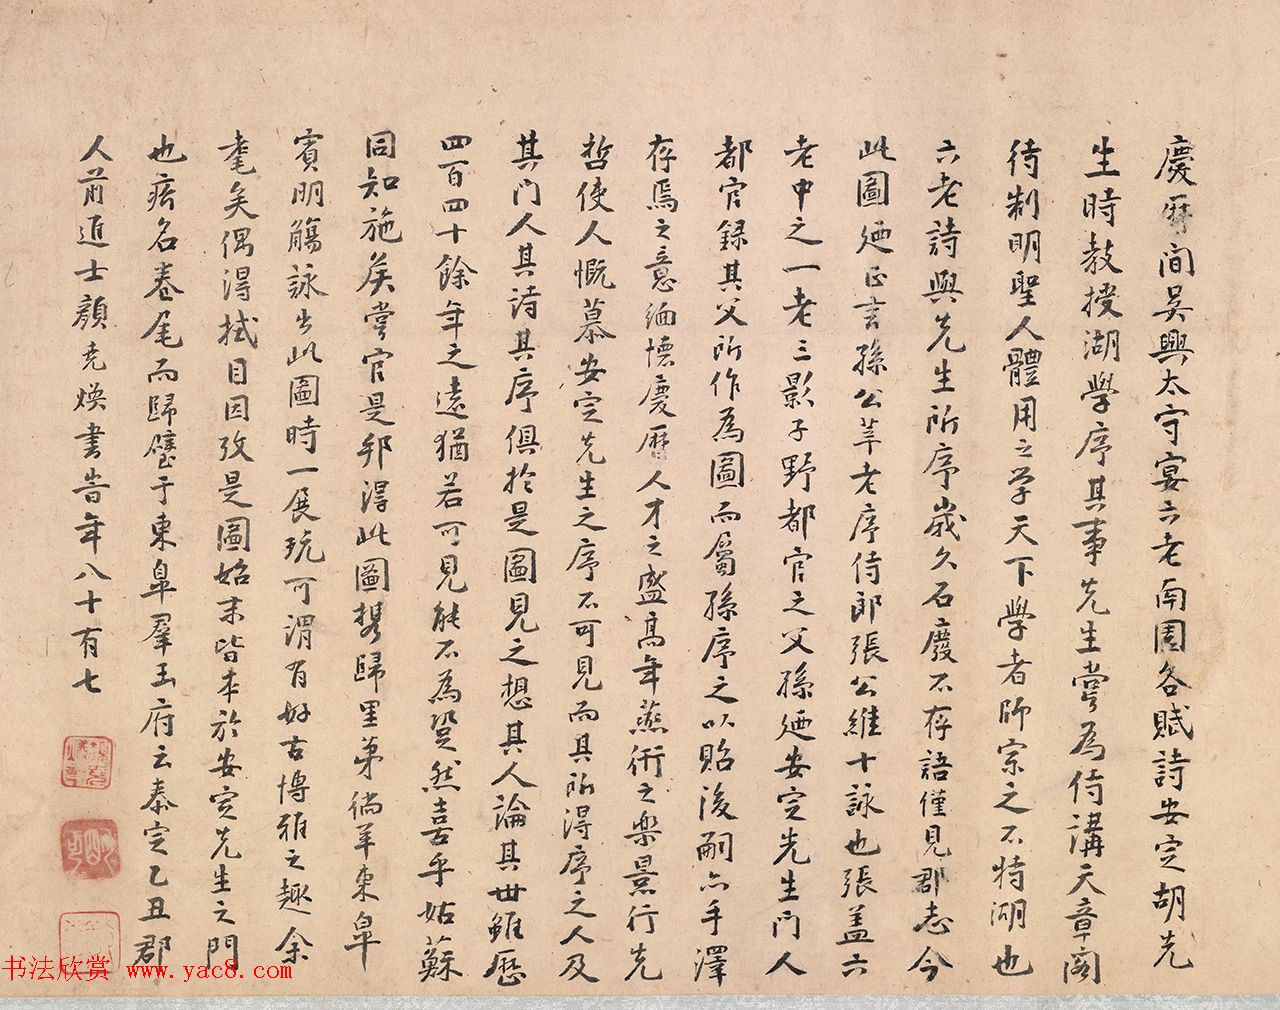 慶曆間吳興太守宴六老南園各賦詩安定胡先
生時教授湖學序其事先生嘗為侍講天章閣
待制明聖人體用之學天下學者師宗之不特湖也
六老詩與先生所序歲久石廢不存語僅見郡志今
此圖廼正言孫公莘老序侍郎張公維十詠也張蓋六
老中之一老三影子野都官之父孫廼安定先生門人
都官錄其父所作為圖而屬孫序之以貽後嗣亦手澤
存焉之意緬懷慶曆人才之盛高年燕衎之樂景行先
哲使人慨慕安定先生之序不可見而其所得序之人及
其門人其詩其序俱於是圖見之想其人論其世雖歷
四百四十餘年之遠猶若可見能不為躍然喜乎姑蘇
同知施矦嘗官是邦得此圖携歸里第徜羊東臯
賓朋觴詠出此圖時一展玩可謂有好古博雅之趣余
耄矣偶得拭目因攷是圖始末皆本於安定先生之門
也疥名卷尾而歸璧于東臯羣玉府云泰定乙丑郡
人前進士顏堯煥書告年八十有七
书法欣赏 www.yac8.com